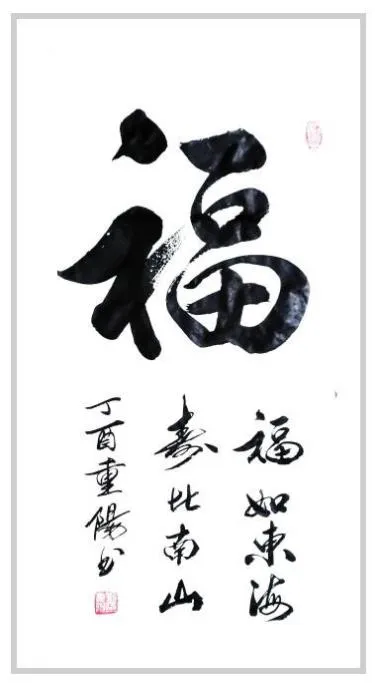 福
福如東海
寿比南山
丁酉重陽书